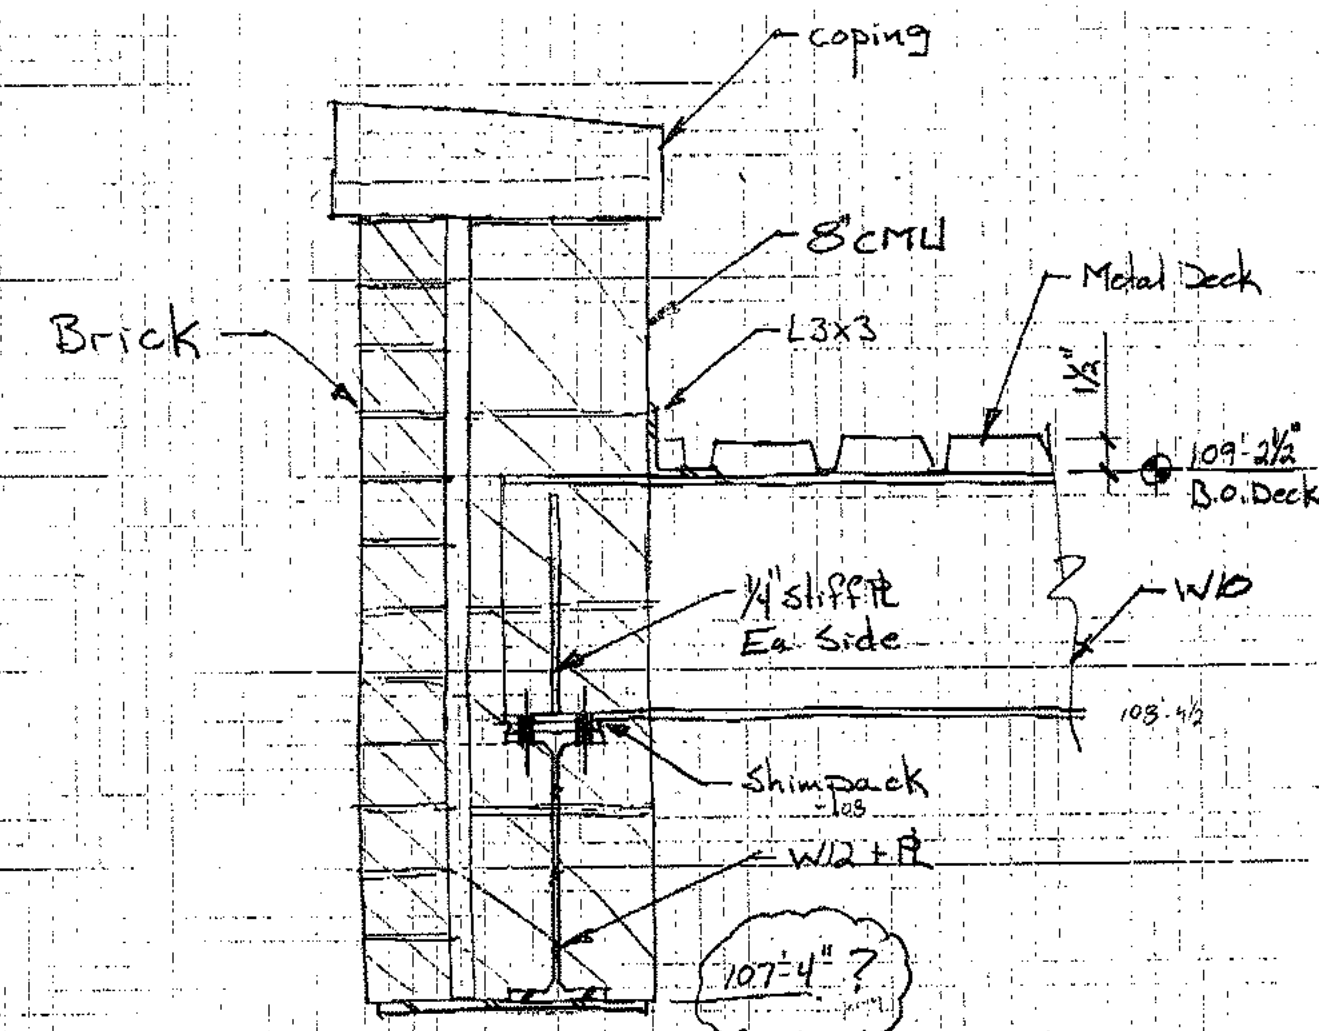 coping
8" CMU
Metal Deck
Brick
L3x3
1½"
109'-2½"
B.O. Deck
¼" stiff PL
Ea Side
W10
108'-4½
Shimpack
-108
W12 + PL
107'-4" ?